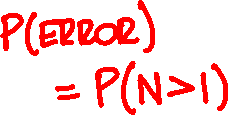 P(ERROR)
= P(N>1)